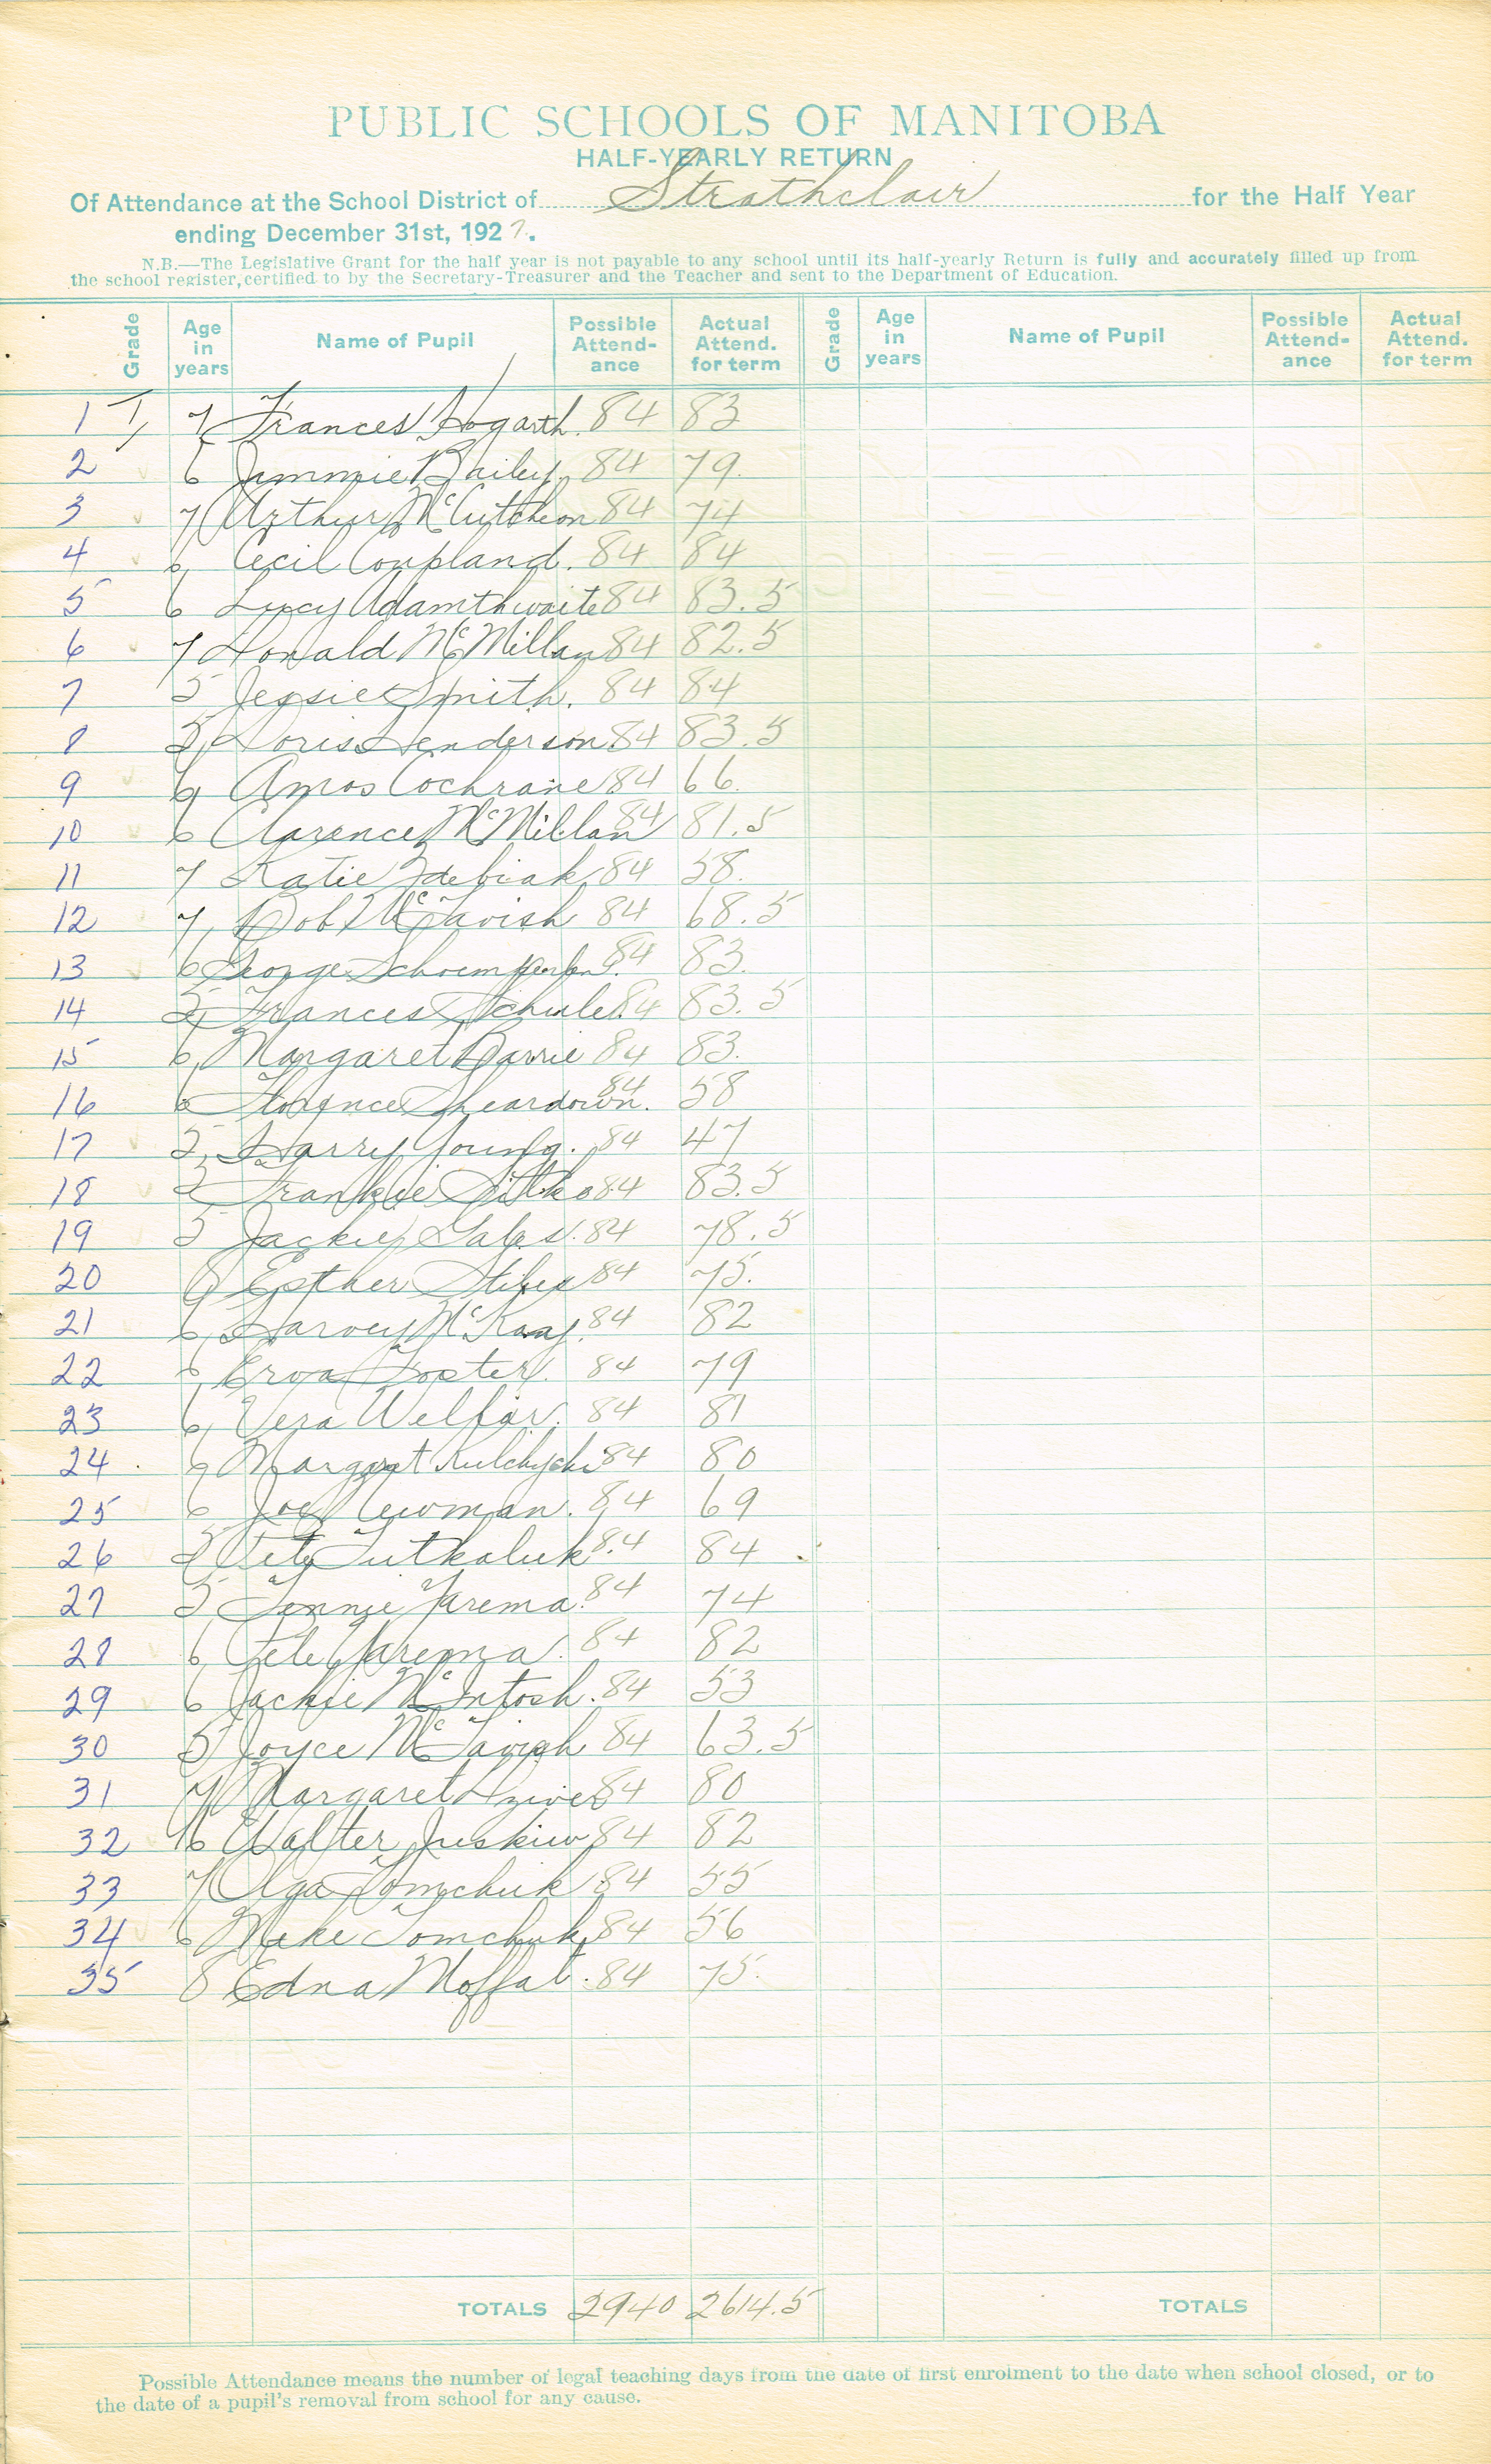 PUBLIC SCHOOLS OF MANITOBA
HALF-YEARLY RETURN
Of Attendance at the School District of Strathclair for the Half Year
ending December 31st, 1927.
N.B.—The Legislative Grant for the half year is not payable to any school until its half-yearly Return is fully and accurately filled up from
the school register, certified to by the Secretary-Treasurer and the Teacher and sent to the Department of Education.
Grade Age in years Name of Pupil Possible Attend-ance Actual Attend. for term Grade Age in years Name of Pupil Possible Attend-ance Actual Attend. for term
1 I 7 Frances Hogarth 84 83
2 6 Jimmie Bailey 84 79.
3 7 Arthur McCutcheon 84 74
4 6 Cecil Coupland. 84 84
5 6 Lucy Adamthwaite 84 83.5
6 7 Donald McMillan 84 82.5
7 5 Jessie Smith. 84 84
8 5 Doris Henderson 84 83.5
9 6 Amos Cochrane 84 66.
10 6 Clarence McMillan 84 81.5
11 7 Katie 84 58.
12 7 Bob McTavish 84 68.5
13 6 George 84 83.
14 5 Frances Schule 84 83.5
15 6 Margaret Barrie 84 83.
16 6 Florence Sheardown. 84 58
17 5 Harry Young. 84 47
18 5 Frankie Sitko 84 83.5
19 5 Jackie Gales. 84 78.5
20 8 Esther Stiles 84 75.
21 6 Harvey McKaay. 84 82
22 6 Erva Foster. 84 79
23 6 Vera Welfar. 84 81
24 6 Margaret Kulchycki 84 80
25 6 Joe Newman. 84 69
26 5 Pete Tutkaluk 84 84
27 5 Jennie Yarema. 84 74
28 6 Pete Yarema. 84 82
29 6 Jackie McIntosh. 84 53
30 5 Joyce McTavish 84 63.5
31 7 Margaret 84 80
32 6 Walter Juskiw 84 82
33 7 Olga Tomchuk 84 55
34 6 Mike Tomchuk 84 56
35 8 Edna Moffat. 84 75.
TOTALS 2940 2614.5 TOTALS
Possible Attendance means the number of legal teaching days from the date of first enrolment to the date when school closed, or to
the date of a pupil's removal from school for any cause.